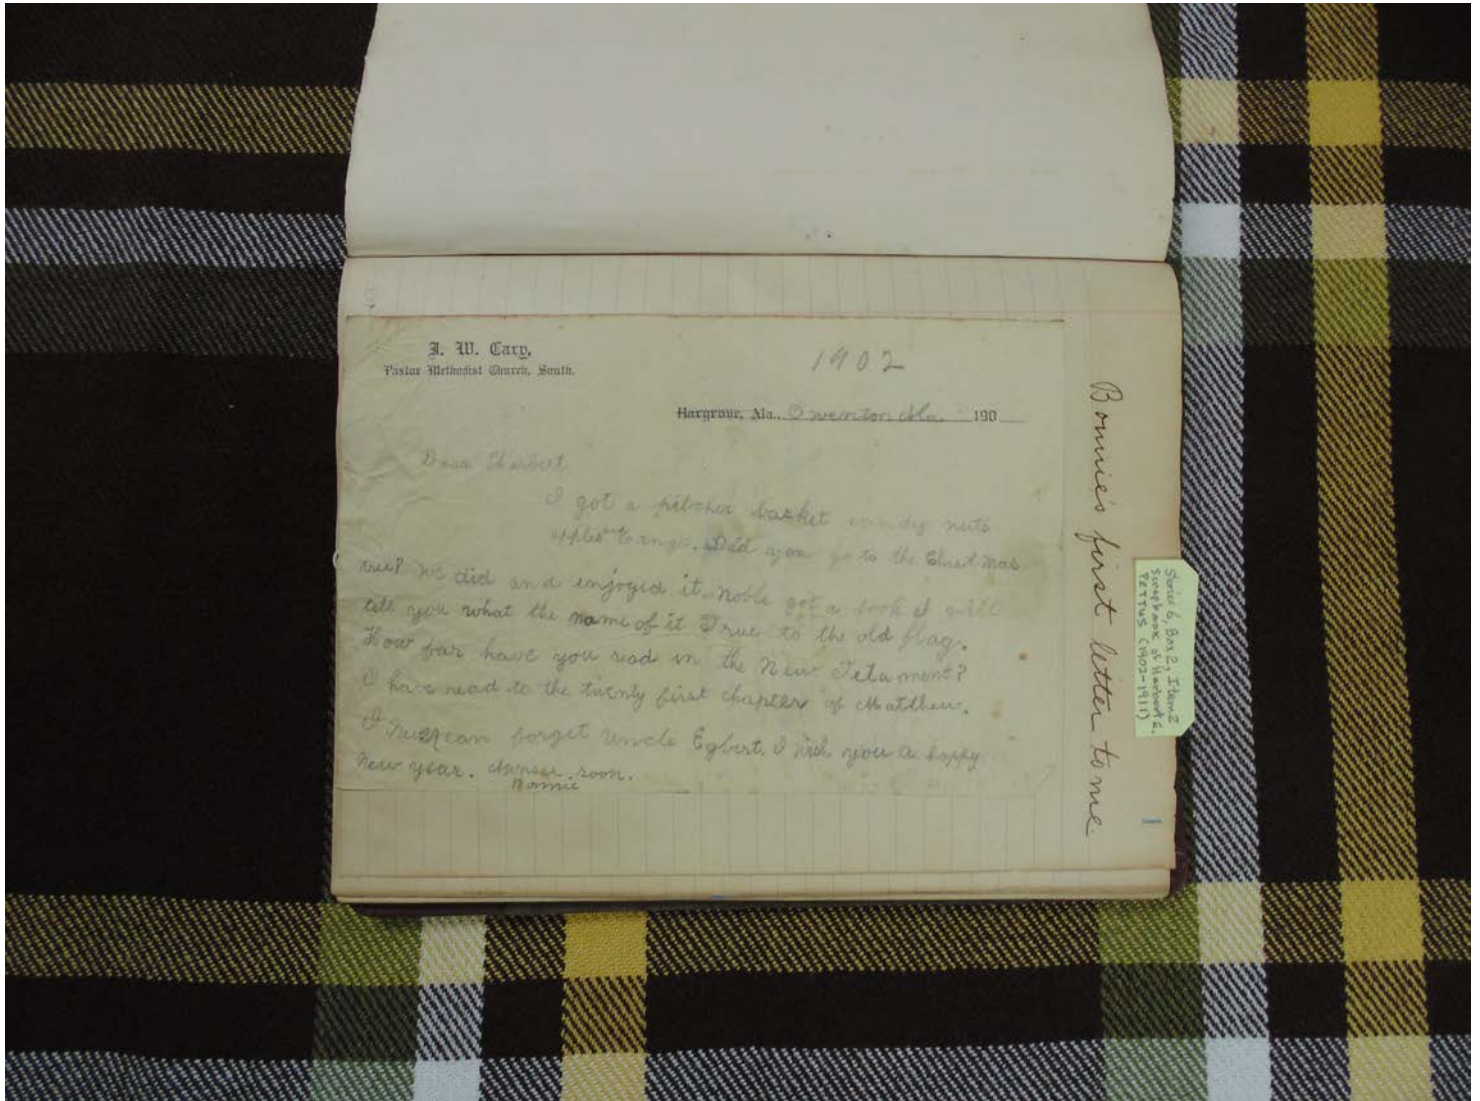 J. W. Cary,
Pastor Methodist Church, South.
1902
Hargrove, Ala., Owenton Ala. 190
Dear Herbert
I got a pitcher basket candy nuts
apples Did you go to the Christmas
tree? We did and enjoyed it. Noble got a book I will
tell you what the name of it True to the old flag.
How far have you read in the New Tetament?
I have read to the twenty first chapter of Matthew.
I forget Uncle Egbert. I wish you a happy
New year. soon.
Bonnie
Bonnie's first letter to me.
Series 6, Box 2, Item 2
Scrapbook of Herbert E.
PETTUS (1902-1911)
1